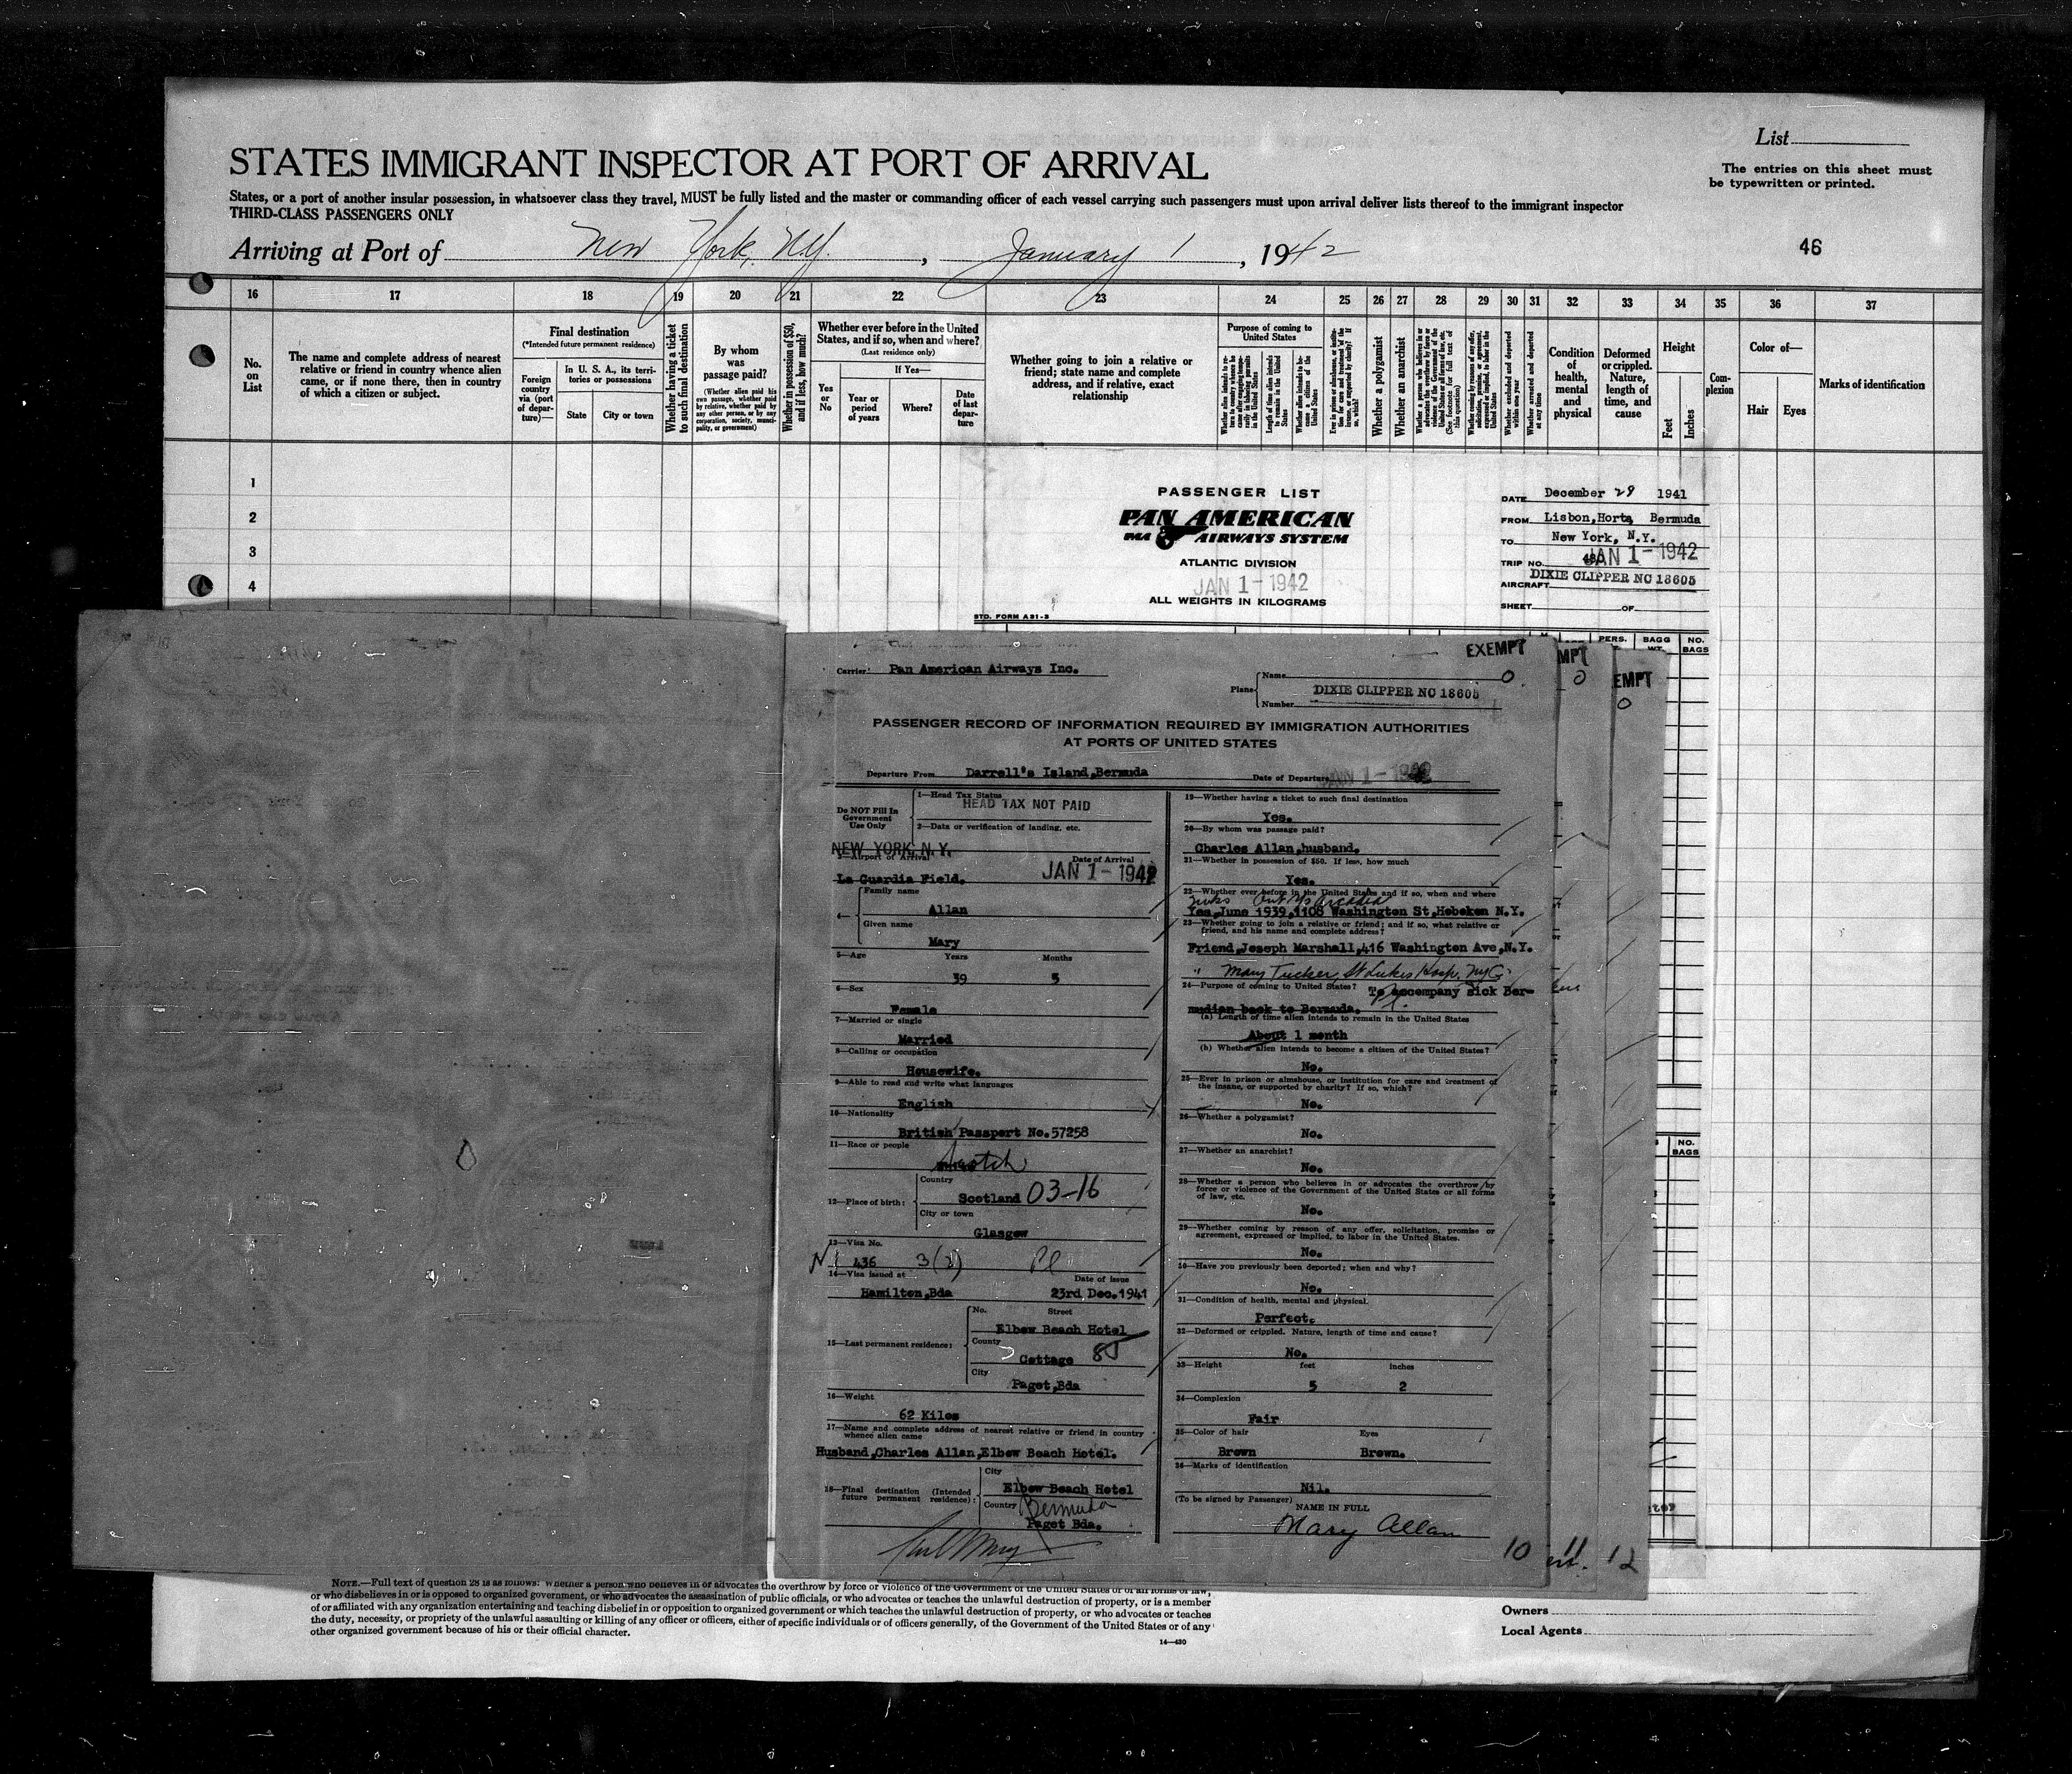 List
STATES IMMIGRANT INSPECTOR AT PORT OF ARRIVAL
The entries on this sheet must
be typewritten or printed.
States, or a port of another insular possession, in whatsoever class they travel, MUST be fully listed and the master or commanding officer of each vessel carrying such passengers must upon arrival deliver lists thereof to the immigrant inspector
THIRD-CLASS PASSENGERS ONLY
Arriving at Port of New York, N.Y., January 1, 1942
46
16 17 18 19 20 21 22 23 24 25 26 27 28 29 30 31 32 33 34 35 36 37
No. on List
The name and complete address of nearest
relative or friend in country whence alien
came, or if none there, then in country
of which a citizen or subject.
Final destination
(*Intended future permanent residence)
Foreign country via (port of departure)—
In U. S. A., its territories or possessions
State
City or town
Whether having a ticket to such final destination
By whom was passage paid?
(Whether alien paid his own passage, whether paid by relative, whether paid by any other person, or by any corporation, society, municipality, or government)
Whether in possession of $50, and if less, how much?
Whether ever before in the United
States, and if so, when and where?
(Last residence only)
Yes or No
If Yes—
Year or period of years
Where?
Date of last departure
Whether going to join a relative or
friend; state name and complete
address, and if relative, exact
relationship
Purpose of coming to
United States
Whether a polygamist
Whether an anarchist
Condition of health, mental and physical
Deformed or crippled. Nature, length of time, and cause
Height
Feet
Inches
Complexion
Color of—
Hair
Eyes
Marks of identification
1
2
3
4
PASSENGER LIST
PAN AMERICAN
PAA AIRWAYS SYSTEM
ATLANTIC DIVISION
JAN 1-1942
ALL WEIGHTS IN KILOGRAMS
STD. FORM A 31-3
DATE December 29 1941
FROM Lisbon, Horta, Bermuda
TO New York, N.Y.
TRIP NO. JAN 1-1942
AIRCRAFT DIXIE CLIPPER NC 18605
SHEET OF
PERS. BAGG WT. NO. BAGS
EXEMPT
MPT
EMPT
0
0
0
Carrier: Pan American Airways Inc.
Plane Name
DIXIE CLIPPER NC 18605
Number
PASSENGER RECORD OF INFORMATION REQUIRED BY IMMIGRATION AUTHORITIES
AT PORTS OF UNITED STATES
Departure From Darrell's Island,Bermuda
Date of Departure JAN 1-1942
Do NOT Fill In
Government
Use Only
1—Head Tax Status
HEAD TAX NOT PAID
2—Data or verification of landing, etc.
NEW YORK, N.Y.
3—Airport of Arrival
Date of Arrival
La Guardia Field.
JAN 1-1942
4—
Family name
Allan
Given name
Mary
5—Age Years Months
39 5
6—Sex
Female
7—Married or single
Married
8—Calling or occupation
Housewife.
9—Able to read and write what languages
English
10—Nationality
British Passport No.57258
11—Race or people
Scotch
12—Place of birth:
Country
Scotland 03-16
City or town
Glasgow
13—Visa No.
436 3(2) Pl
14—Visa issued at Date of issue
Hamilton,Bda 23rd Dec.1941
15—Last permanent residence:
No. Street
Elbow Beach Hotel
County
Cottage 85
City
Paget,Bda
16—Weight
62 Kilos
17—Name and complete address of nearest relative or friend in country
whence alien came
Husband,Charles Allan,Elbow Beach Hotel.
18—Final destination (Intended
future permanent residence):
City
Elbow Beach Hotel
Country Bermuda
Paget Bda.
19—Whether having a ticket to such final destination
Yes.
20—By whom was passage paid?
Charles Allan,husband.
21—Whether in possession of $50. If less, how much
Yes.
22—Whether ever before in the United States and if so, when and where
Yes,June 1939,1108 Washington St,Hoboken N.Y.
23—Whether going to join a relative or friend; and if so, what relative or
friend, and his name and complete address?
Friend,Joseph Marshall,416 Washington Ave,N.Y.
" Mary Tucker, St Lukes Hosp. NYC
24—Purpose of coming to United States? To accompany sick Ber-
mudian back to Bermuda.
(a) Length of time alien intends to remain in the United States
About 1 month
(b) Whether alien intends to become a citizen of the United States?
No.
25—Ever in prison or almshouse, or institution for care and treatment of
the insane, or supported by charity? If so, which?
No.
26—Whether a polygamist?
No.
27—Whether an anarchist?
No.
28—Whether a person who believes in or advocates the overthrow by
force or violence of the Government of the United States or all forms
of law, etc.
No.
29—Whether coming by reason of any offer, solicitation, promise or
agreement, expressed or implied, to labor in the United States.
No.
30—Have you previously been deported; when and why?
No.
31—Condition of health, mental and physical.
Perfect.
32—Deformed or crippled. Nature, length of time and cause?
No.
33—Height feet inches
5 2
34—Complexion
Fair
35—Color of hair Eyes
Brown Brown.
36—Marks of identification
Nil.
(To be signed by Passenger)
NAME IN FULL
Mary Allan
10 11 12
NO. BAGS
NOTE.—Full text of question 28 is as follows: Whether a person who believes in or advocates the overthrow by force or violence of the Government of the United States or of all forms of law,
or who disbelieves in or is opposed to organized government, or who advocates the assassination of public officials, or who advocates or teaches the unlawful destruction of property, or is a member
of or affiliated with any organization entertaining and teaching disbelief in or opposition to organized government or which teaches the unlawful destruction of property, or who advocates or teaches
the duty, necessity, or propriety of the unlawful assaulting or killing of any officer or officers, either of specific individuals or of officers generally, of the Government of the United States or of any
other organized government because of his or their official character.
14—430
Owners
Local Agents